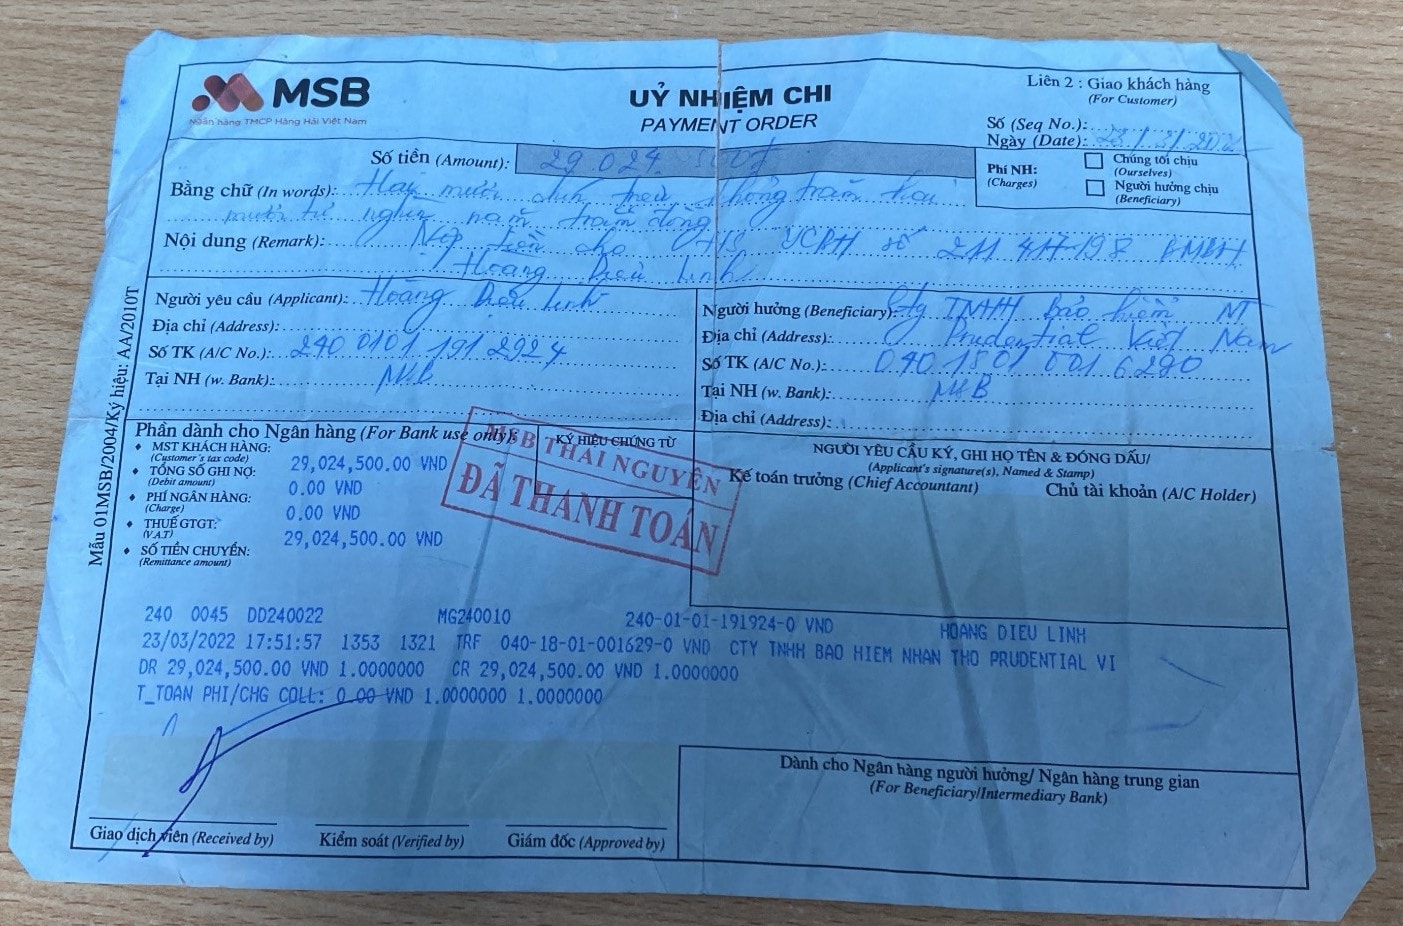 MSB
Ngân hàng TMCP Hàng Hải Việt Nam
UỶ NHIỆM CHI
PAYMENT ORDER
Liên 2 : Giao khách hàng
(For Customer)
Số (Seq No.):
Ngày (Date): 23/3/2022
Số tiền (Amount): 29.024.500đ
Phí NH:
(Charges)
Chúng tôi chịu
(Ourselves)
Người hưởng chịu
(Beneficiary)
Bằng chữ (In words): Hai mươi chín triệu không trăm hai
mươi tư nghìn năm trăm đồng
Nội dung (Remark): Nộp tiền cho HS YCBH số 211 417 198 BMBH
Hoàng Diệu Linh
Người yêu cầu (Applicant): Hoàng Diệu Linh
Địa chỉ (Address):
Số TK (A/C No.): 240 0101 191 2924
Tại NH (w. Bank): MSB
Người hưởng (Beneficiary): Cty TNHH Bảo hiểm NT
Địa chỉ (Address): Prudential Việt Nam
Số TK (A/C No.): 040 1801 001 6290
Tại NH (w. Bank): MSB
Địa chỉ (Address):
Mẫu 01MSB/2004/Ký hiệu: AA/2010T
Phần dành cho Ngân hàng (For Bank use only):
MST KHÁCH HÀNG:
(Customer's tax code)
TỔNG SỐ GHI NỢ: 29,024,500.00 VND
(Debit amount)
PHÍ NGÂN HÀNG: 0.00 VND
(Charge)
THUẾ GTGT: 0.00 VND
(V.A.T)
SỐ TIỀN CHUYỂN: 29,024,500.00 VND
(Remittance amount)
KÝ HIỆU CHỨNG TỪ
MSB THÁI NGUYÊN
ĐÃ THANH TOÁN
NGƯỜI YÊU CẦU KÝ, GHI HỌ TÊN & ĐÓNG DẤU/
(Applicant's signature(s), Named & Stamp)
Kế toán trưởng (Chief Accountant)
Chủ tài khoản (A/C Holder)
240 0045 DD240022 MG240010 240-01-01-191924-0 VND HOANG DIEU LINH
23/03/2022 17:51:57 1353 1321 TRF 040-18-01-001629-0 VND CTY TNHH BAO HIEM NHAN THO PRUDENTIAL VI
DR 29,024,500.00 VND 1.0000000 CR 29,024,500.00 VND 1.0000000
T_TOAN PHI/CHG COLL: 0.00 VND 1.0000000 1.0000000
Giao dịch viên (Received by)
Kiểm soát (Verified by)
Giám đốc (Approved by)
Dành cho Ngân hàng người hưởng/ Ngân hàng trung gian
(For Beneficiary/Intermediary Bank)